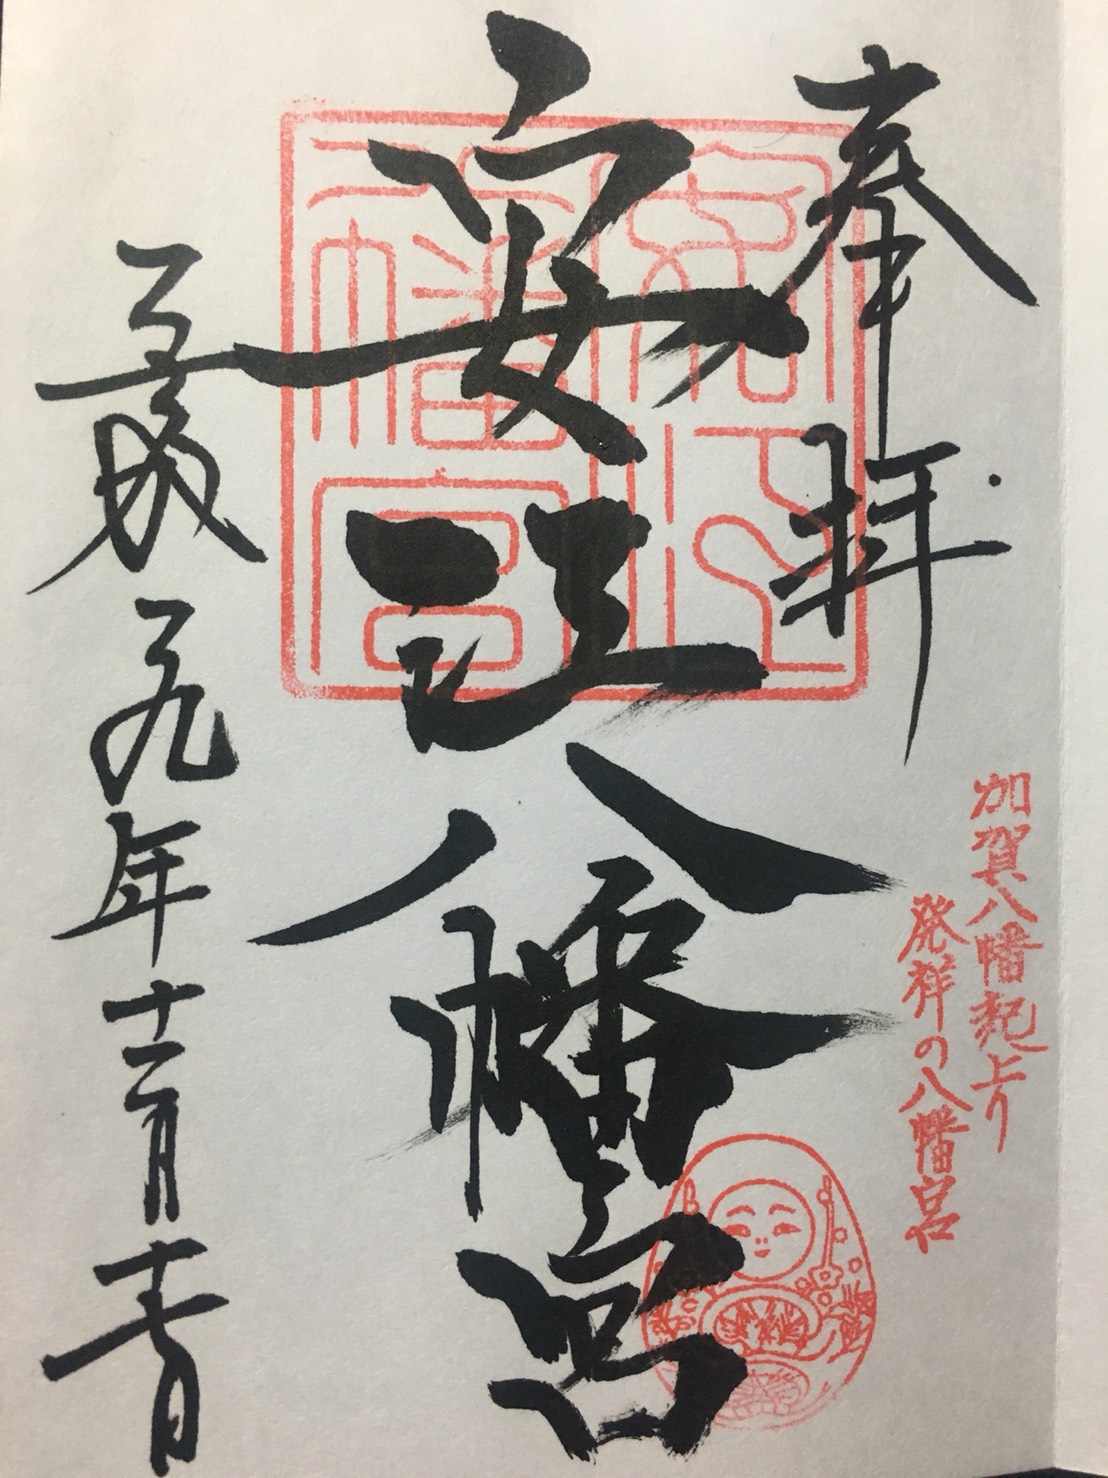 奉拝
加賀八幡起上り
発祥の八幡宮
安江八幡宮
平成二九年十二月十七日